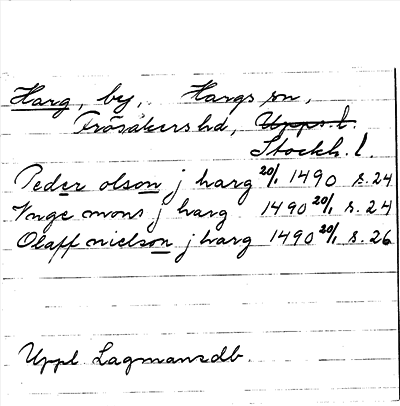 Harg, by, Hargs sn,
Frösåkers hd, Upps. l.
Stockh. l.
Peder olson j harg 20/1 1490 s. 24
Ynge mons j harg 1490 20/1 s. 24
Olaff nielson j harg 1490 20/1 s. 26
Uppl. Lagmansdb.